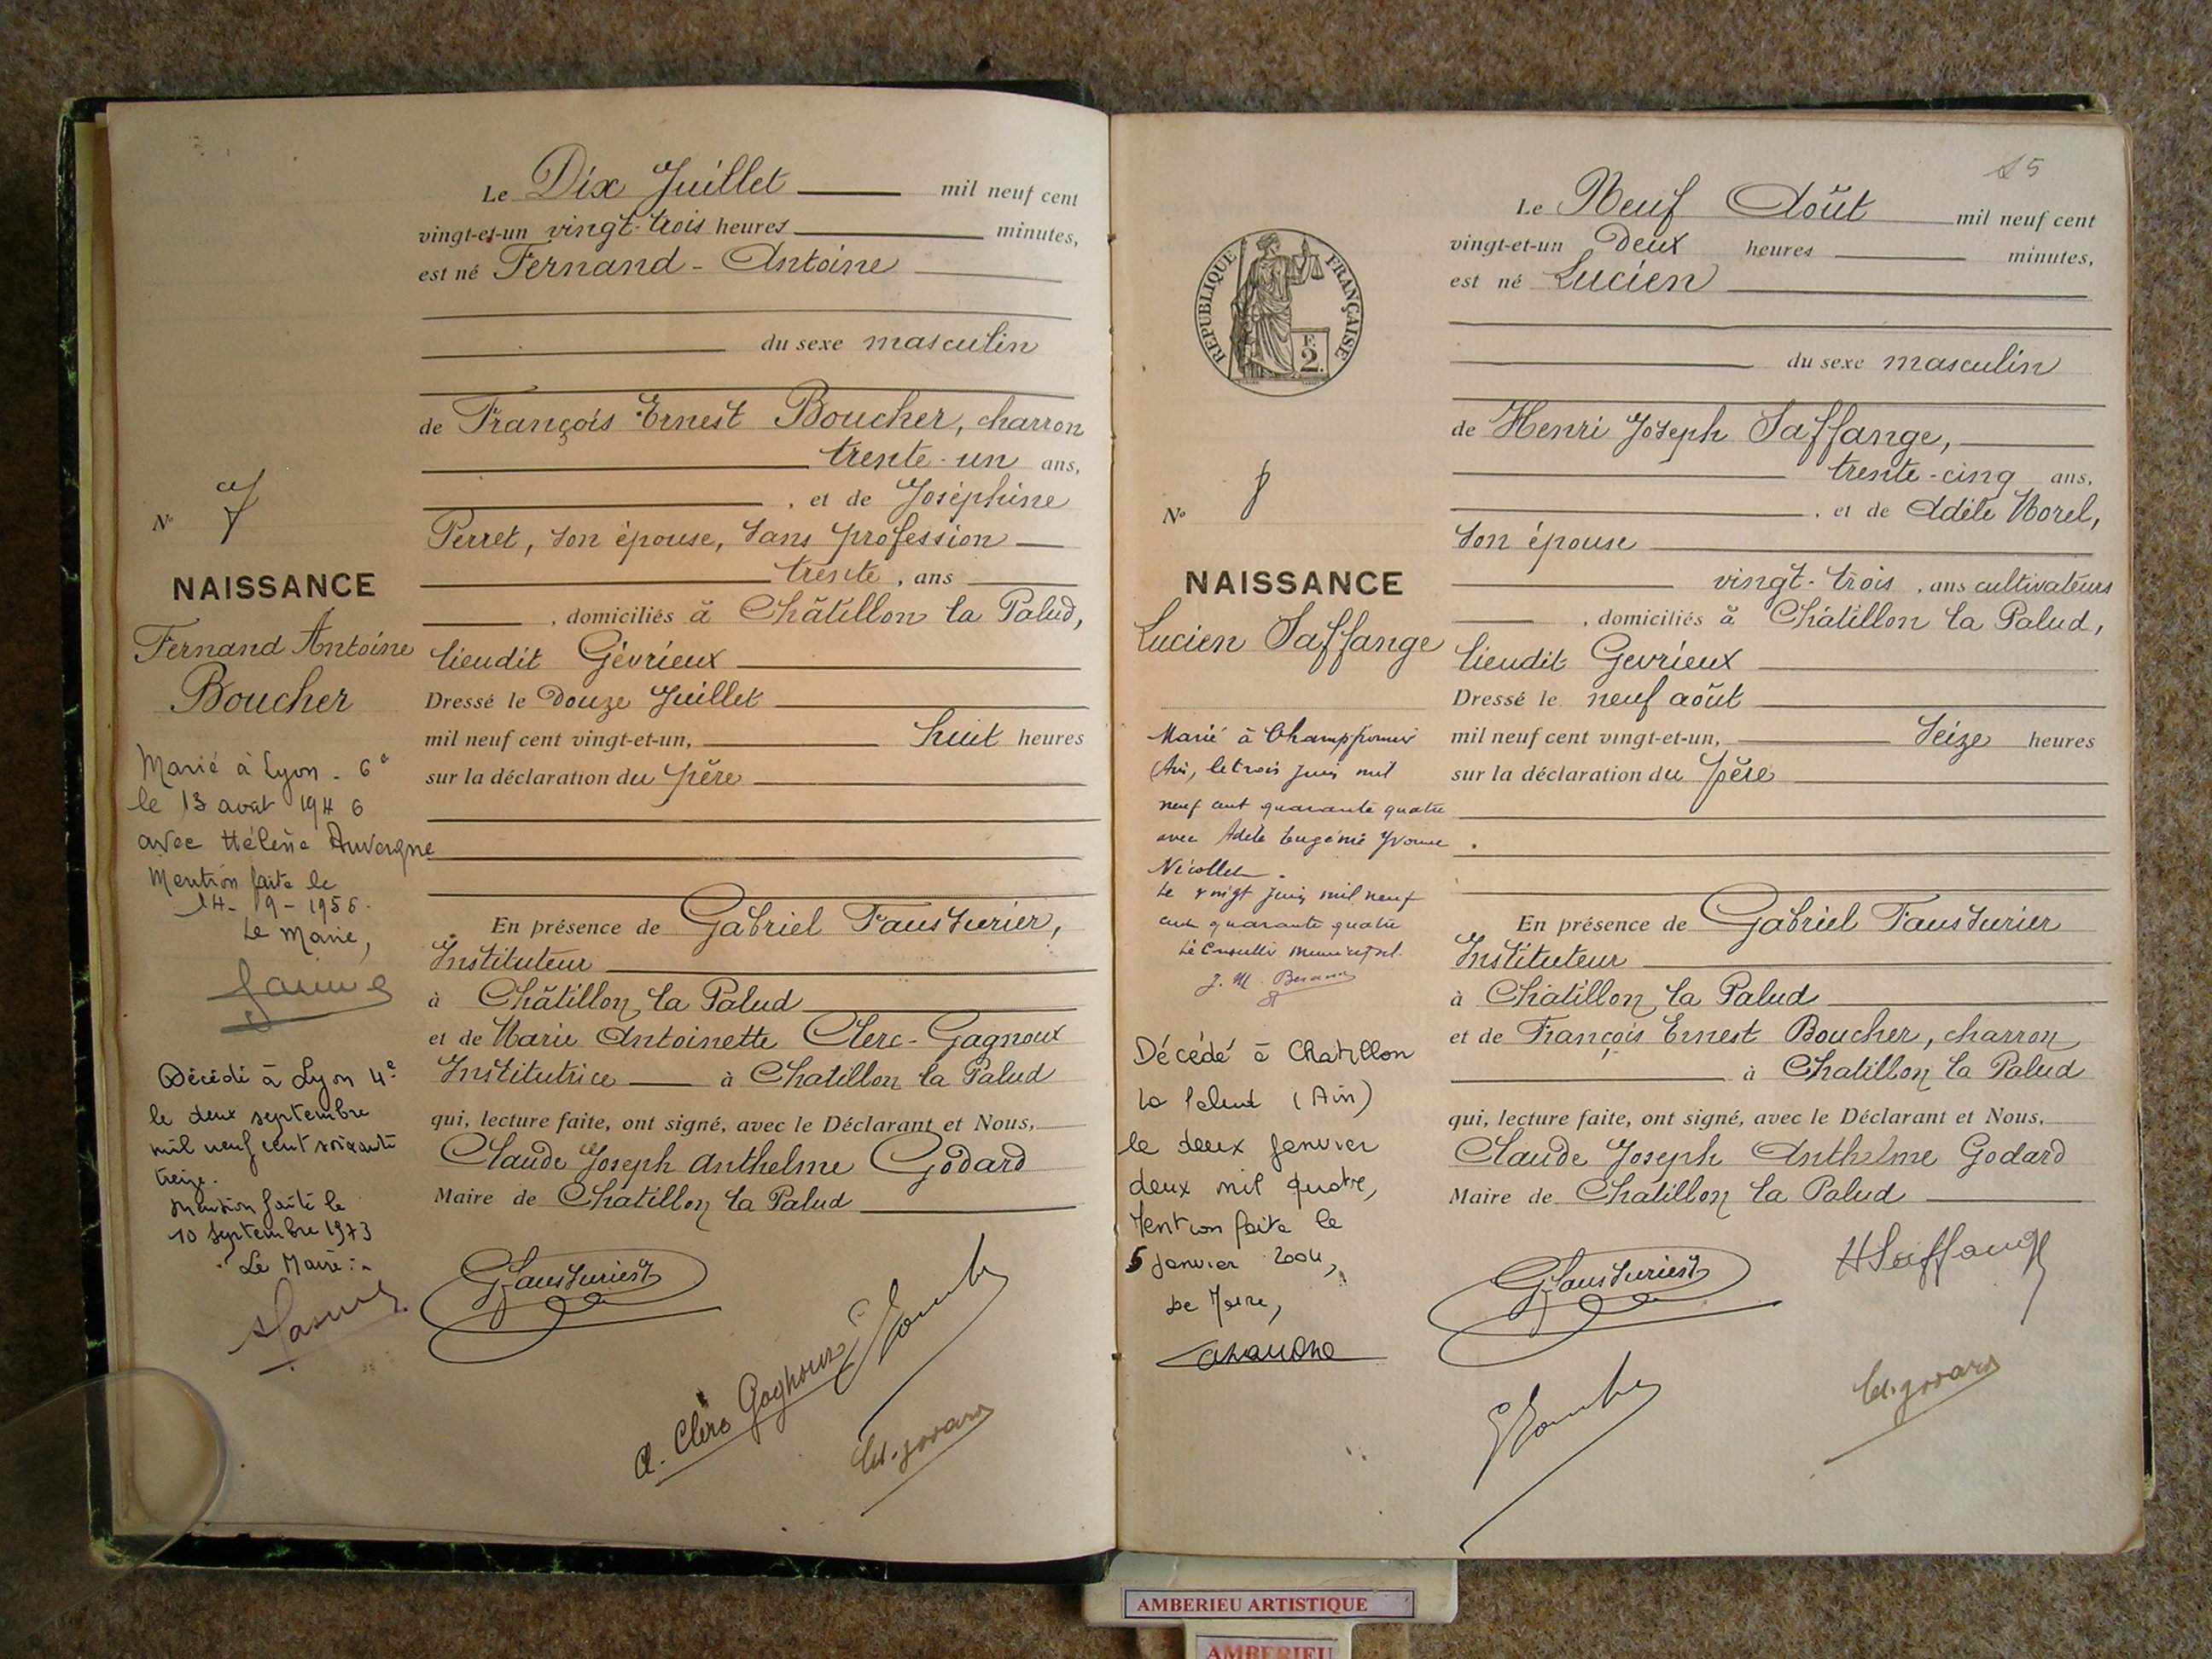 Le Dix Juillet mil neuf cent
vingt-et-un vingt-trois heures minutes,
est né Fernand - Antoine
du sexe masculin
de François Ernest Boucher, charron
trente-un ans,
, et de Joséphine
Perret, son épouse, sans profession
trente, ans
, domiciliés à Châtillon la Palud,
lieudit Gévrieux
Dressé le Douze Juillet
mil neuf cent vingt-et-un, huit heures
sur la déclaration du père
En présence de Gabriel Fausturier,
Instituteur
à Châtillon la Palud
et de Marie Antoinette Clerc-Gagnoux
Institutrice à Chatillon la Palud
qui, lecture faite, ont signé, avec le Déclarant et Nous,
Claude Joseph Anthelme Godard
Maire de Chatillon la Palud
N° 7
NAISSANCE
Fernand Antoine
Boucher
Marié à Lyon - 6e
le 13 avril 1946
avec Hélène Auvergne
Mention faite le
14-9-1956.
Le Maire,
Décédé à Lyon 4e
le deux septembre
mil neuf cent soixante
treize.
Mention faite le
10 septembre 1973
Le Maire :
G Fausturier
A. Clerc Gagnoux
15
Le Neuf Août mil neuf cent
vingt-et-un Deux heures minutes,
est né Lucien
du sexe masculin
de Henri Joseph Saffange,
trente-cinq ans,
, et de Adèle Morel,
son épouse
vingt-trois, ans cultivateurs
, domiciliés à Châtillon la Palud,
lieudit Gevrieux
Dressé le neuf août
mil neuf cent vingt-et-un, seize heures
sur la déclaration du père
En présence de Gabriel Fausturier
Instituteur
à Châtillon la Palud
et de François Ernest Boucher, charron
à Chatillon la Palud
qui, lecture faite, ont signé, avec le Déclarant et Nous,
Claude Joseph Anthelme Godard
Maire de Chatillon la Palud
RÉPUBLIQUE FRANÇAISE
F.
2.
N° 8
NAISSANCE
Lucien Saffange
Marié à
(Ain, le trois juin mil
neuf cent quarante quatre
avec Adèle Eugénie Yvonne
Nicollet.
Le vingt juin mil neuf
cent quarante quatre
Le Conseiller municipal.
J. M.
Décédé à Chatillon
la Palud (Ain)
le deux janvier
deux mil quatre,
Mention faite le
5 janvier 2004,
Le Maire,
G Fausturier
H Saffange
AMBERIEU ARTISTIQUE
AMBERIEU